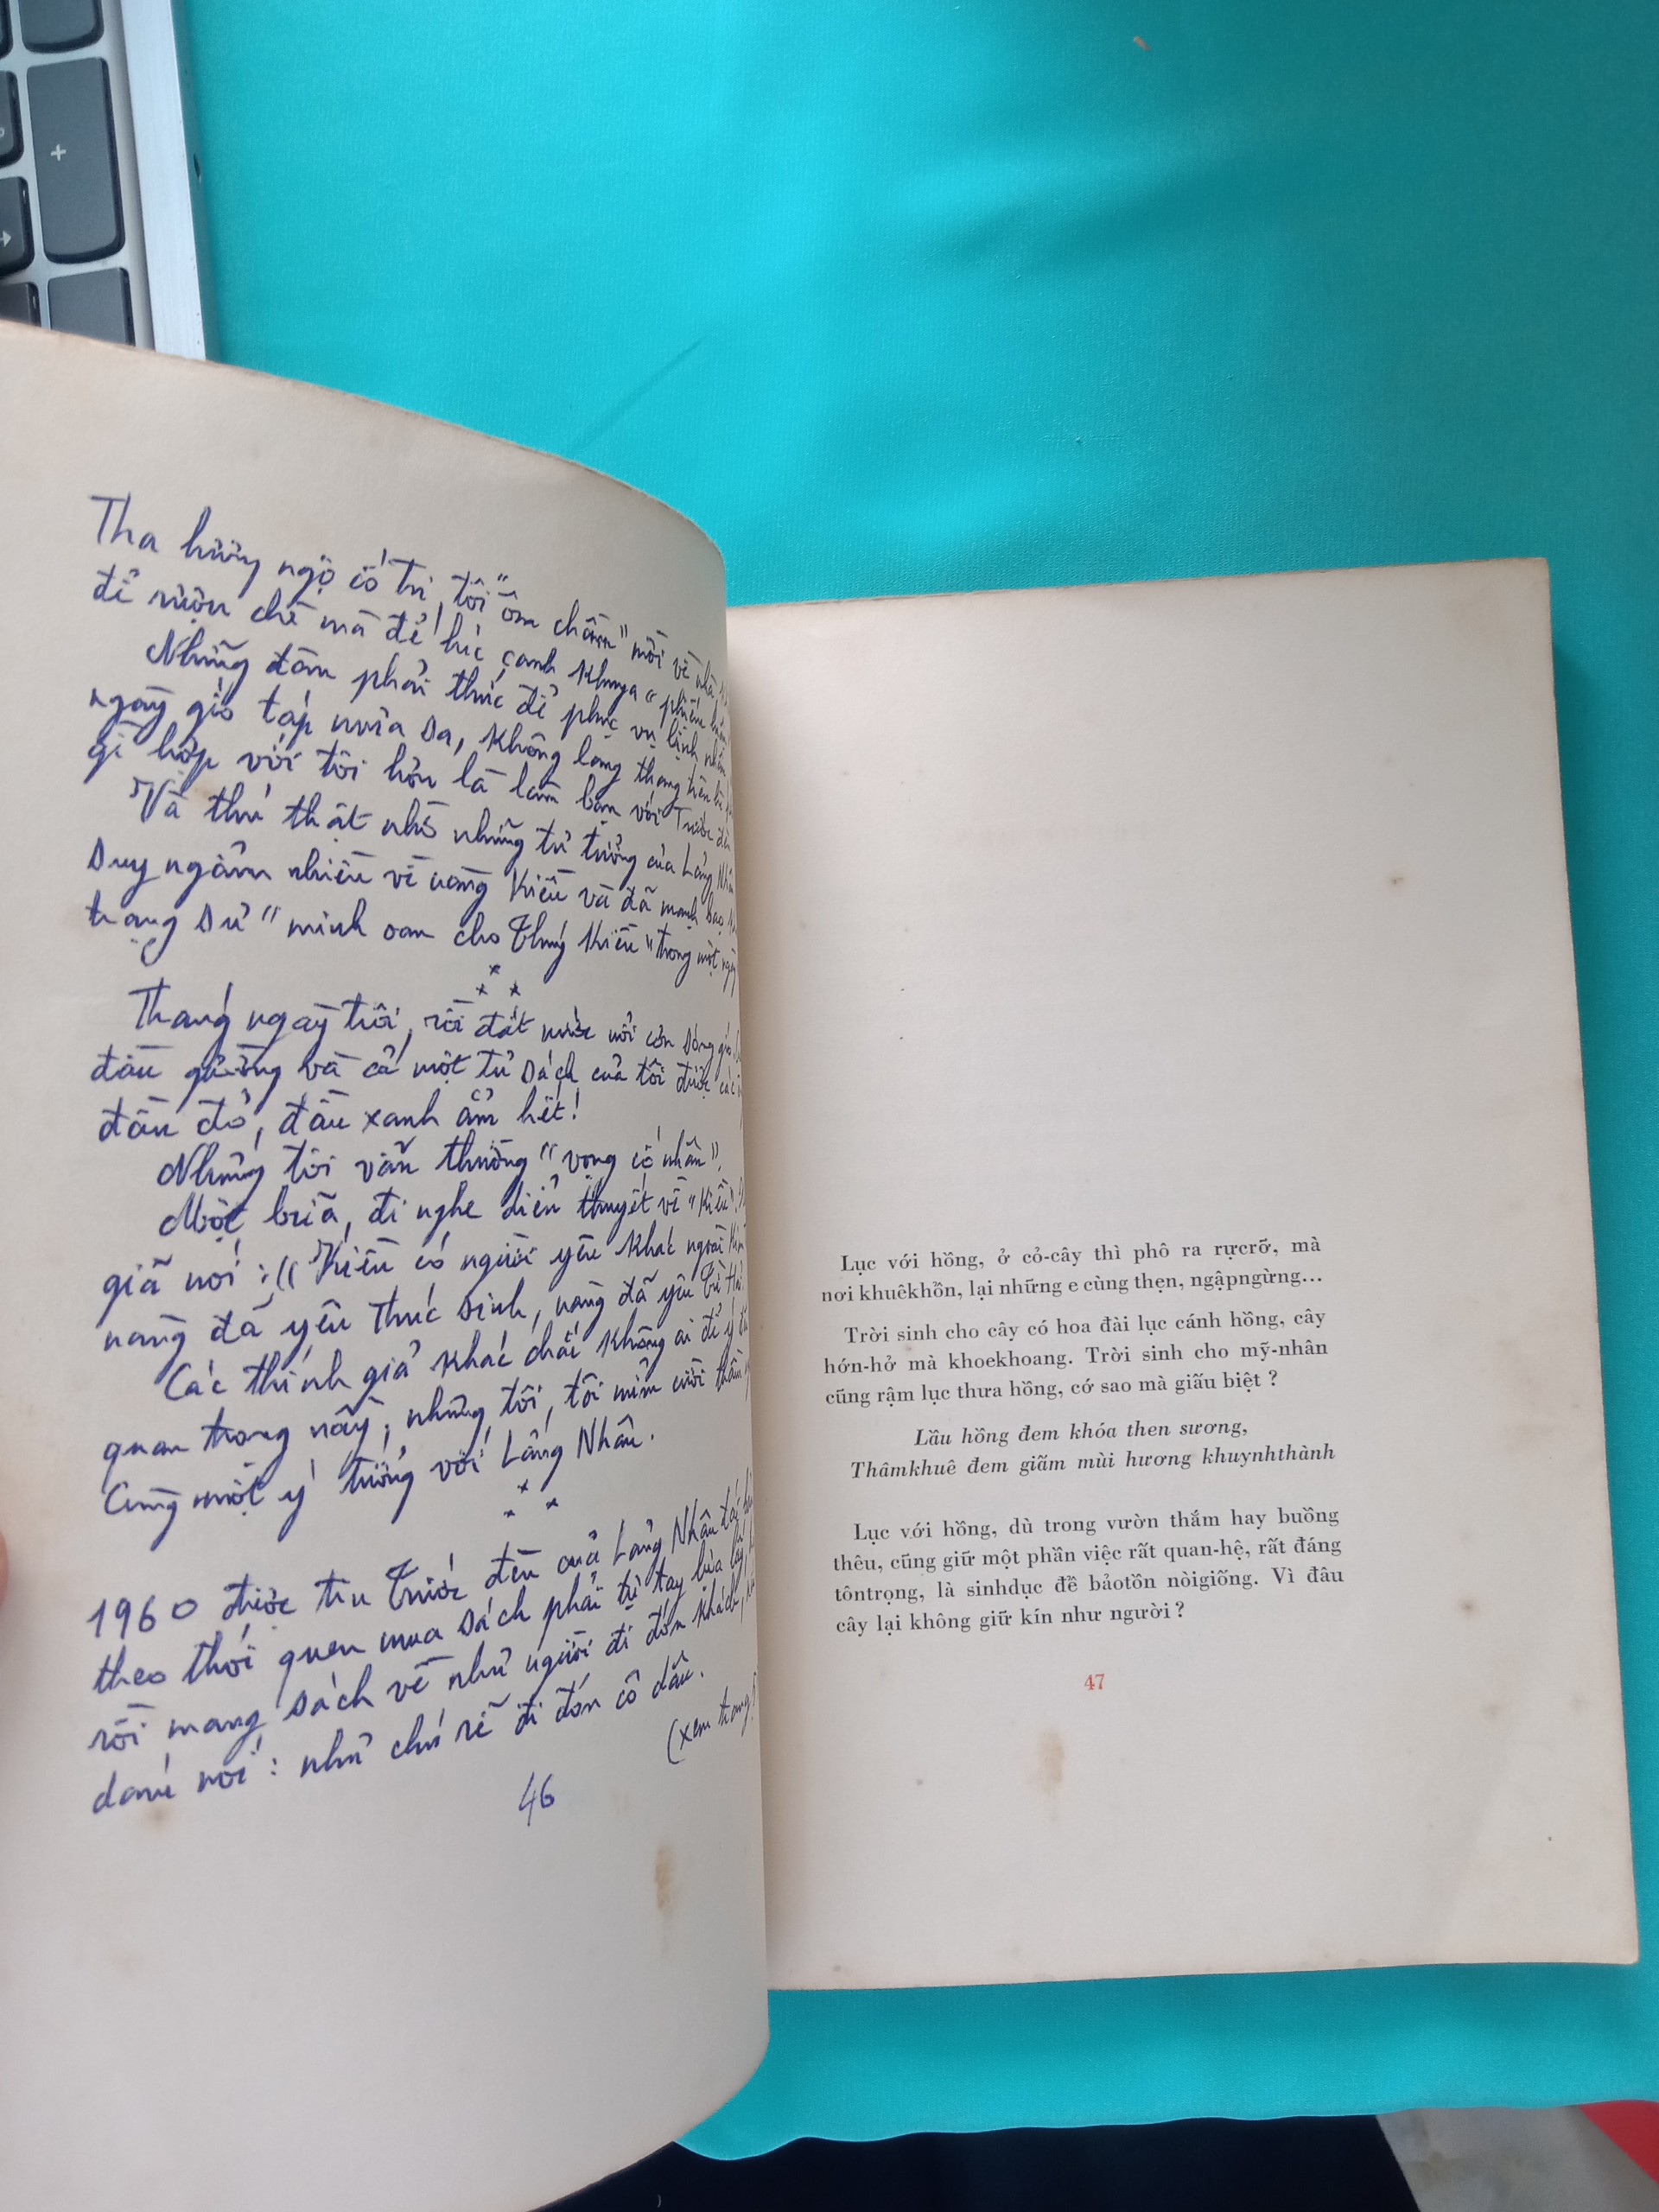 +
Tha hương ngộ cố tri, tôi "ôm chầm" mời về nhà,
để rượu chè mà để lúc canh khuya "phiếm
Những đêm phải thức để phục vụ bệnh nhân
ngày gió táp mưa sa, không lang thang trên
gì hợp với tôi hơn là làm bạn với Trước đèn
Và thú thật nhờ những tư tưởng của Lãng Nhân
suy ngẫm nhiều về nàng Kiều và đã mạnh bạo
trạng sư "minh oan cho Thúy Kiều" trong một
x x x
Tháng ngày trôi, rồi đất nước nổi cơn sóng gió
đầu giường và cả một tủ sách của tôi được các
đầu đỏ, đầu xanh ẵm hết!
Nhưng tôi vẫn thường "vọng cố nhân".
Một bữa, đi nghe diễn thuyết về "Kiều".
giả nói : (( Kiều có người yêu khác ngoài Kim
nàng đã yêu Thúc Sinh, nàng đã yêu Từ Hải
Các thính giả khác chắc không ai để ý
quan trọng nầy; nhưng tôi, tôi mỉm cười thầm
Cùng một ý tưởng với Lãng Nhân.
x x x
1960 được tin Trước đèn của Lãng Nhân tái
theo thói quen mua sách phải tự tay lựa lấy,
rồi mang sách về như người đi đón khách,
dám nói : như chú rể đi đón cô dâu.
(xem trang
46
Lục với hồng, ở cỏ-cây thì phô ra rựcrỡ, mà
nơi khuêkhồn, lại những e cùng thẹn, ngậpngừng...
Trời sinh cho cây có hoa đài lục cánh hồng, cây
hớn-hở mà khoekhoang. Trời sinh cho mỹ-nhân
cũng rậm lục thưa hồng, cớ sao mà giấu biệt ?
Lầu hồng đem khóa then sương,
Thâmkhuê đem giấm mùi hương khuynhthành
Lục với hồng, dù trong vườn thắm hay buồng
thêu, cũng giữ một phần việc rất quan-hệ, rất đáng
tôntrọng, là sinhdục để bảotồn nòigiống. Vì đâu
cây lại không giữ kín như người ?
47